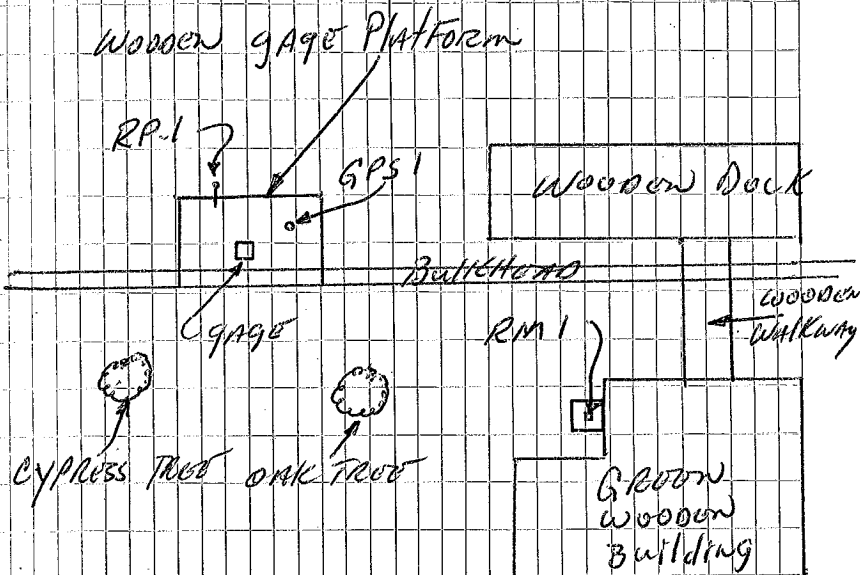 WOODEN gAgE PlatForm
RP-1
GPS 1
WOODEN DOCK
BulKHEAD
gAgE
RM 1
WOODEN
WalKway
CYPRESS TREE
OAK TREE
GREEN
WOODEN
Building